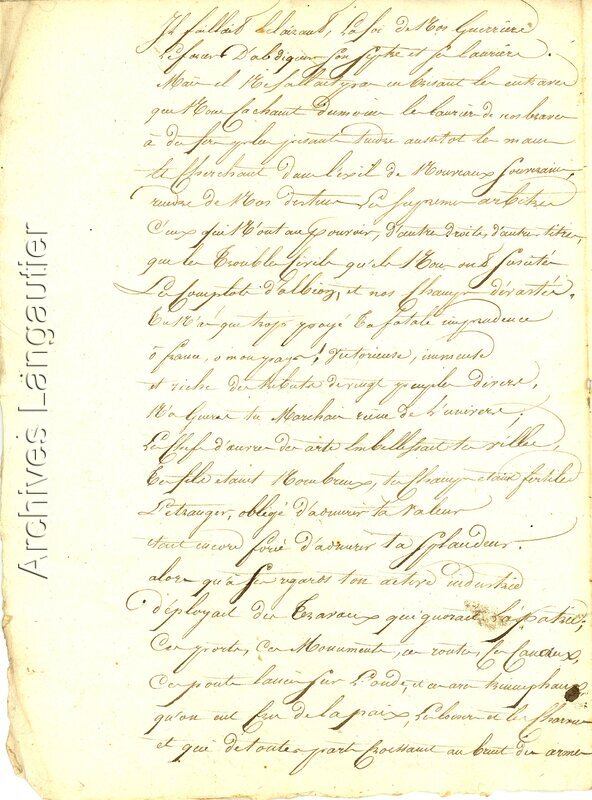 Il falloit la loi de Nos Guerriers
D'abdiquer son septre et ses lauriers.
Mais il Ne falloit pas en brisant les entraves
que Nous cachaient dumoins les lauriers de nos braves
à des fers plus pesants tendre aussitot les mains
Et Cherchant dans l'exil de Nouveaux Souverains,
rendre de Nos destins Les Supremes arbitres
Ceux qui N'ont au pouvoir, d'autres droits, d'autres titres,
que les Troubles Civils qu'ils Nous ont Suscités
Les Complots d'albion, et nos Champs dévastés.
Tu N'as que trop payé Ta fatale imprudence
ô france, o mon pays! Victorieuse, immense
et riche des tributs de vingt peuples divers,
N'a Guerre tu Marchais reine de L'univers;
Les Chefs d'œuvres des arts Embellissait tes villes,
Tes fils etaient Nombreux, tes Champs etaient fertiles
L'etranger, obligé d'admirer ta Valeur
était encore forcé d'admirer ta Splendeur.
alors qu'à Ses regards ton active industrie
déployait des Travaux qu'ignorait Sa patrie,
Ces ports, Ces Monuments, ces routes, Ces Canaux,
Ces ponts lancés Sur L'onde, et ces arcs triomphaux
qu'on eut Cru de la paix, Les loisirs et les Charmes
et qui de toutes parts Croissaient au bruit des armes
Archives Langautier